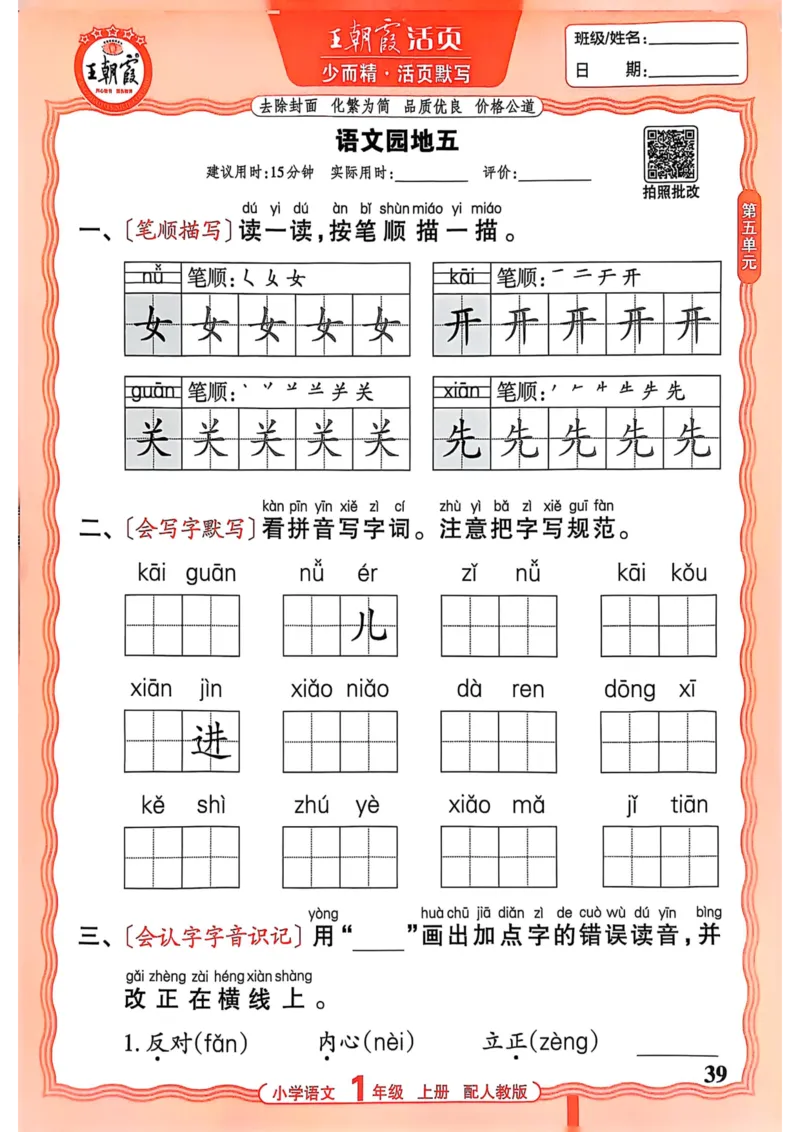 王朝霞®活页
少而精·活页默写
王朝霞
班级/姓名:________
日　　期:________
去除封面　化繁为简　品质优良　价格公道
语文园地五
建议用时:15分钟　实际用时:________　评价:________
拍照批改
第五单元
dú yi dú　àn bǐ shùn miáo yi miáo
一、〔笔顺描写〕读一读,按笔顺描一描。
nǚ　笔顺:く 女 女
女 女 女 女 女
kāi　笔顺:一 二 于 开
开 开 开 开 开
guān　笔顺:
关 关 关 关 关
xiān　笔顺:
先 先 先 先 先
kàn pīn yīn xiě zì cí　zhù yì bǎ zì xiě guī fàn
二、〔会写字默写〕看拼音写字词。注意把字写规范。
kāi guān　nǚ ér　zǐ nǚ　kāi kǒu
儿
xiān jìn　xiǎo niǎo　dà ren　dōng xī
进
kě shì　zhú yè　xiǎo mǎ　jǐ tiān
yòng　huà chū jiā diǎn zì de cuò wù dú yīn　bìng
三、〔会认字字音识记〕用“____”画出加点字的错误读音,并
gǎi zhèng zài héng xiàn shàng
改正在横线上。
1.反对(fǎn)　内心(nèi)　立正(zèng)　________
39
小学语文 1年级 上册 配人教版